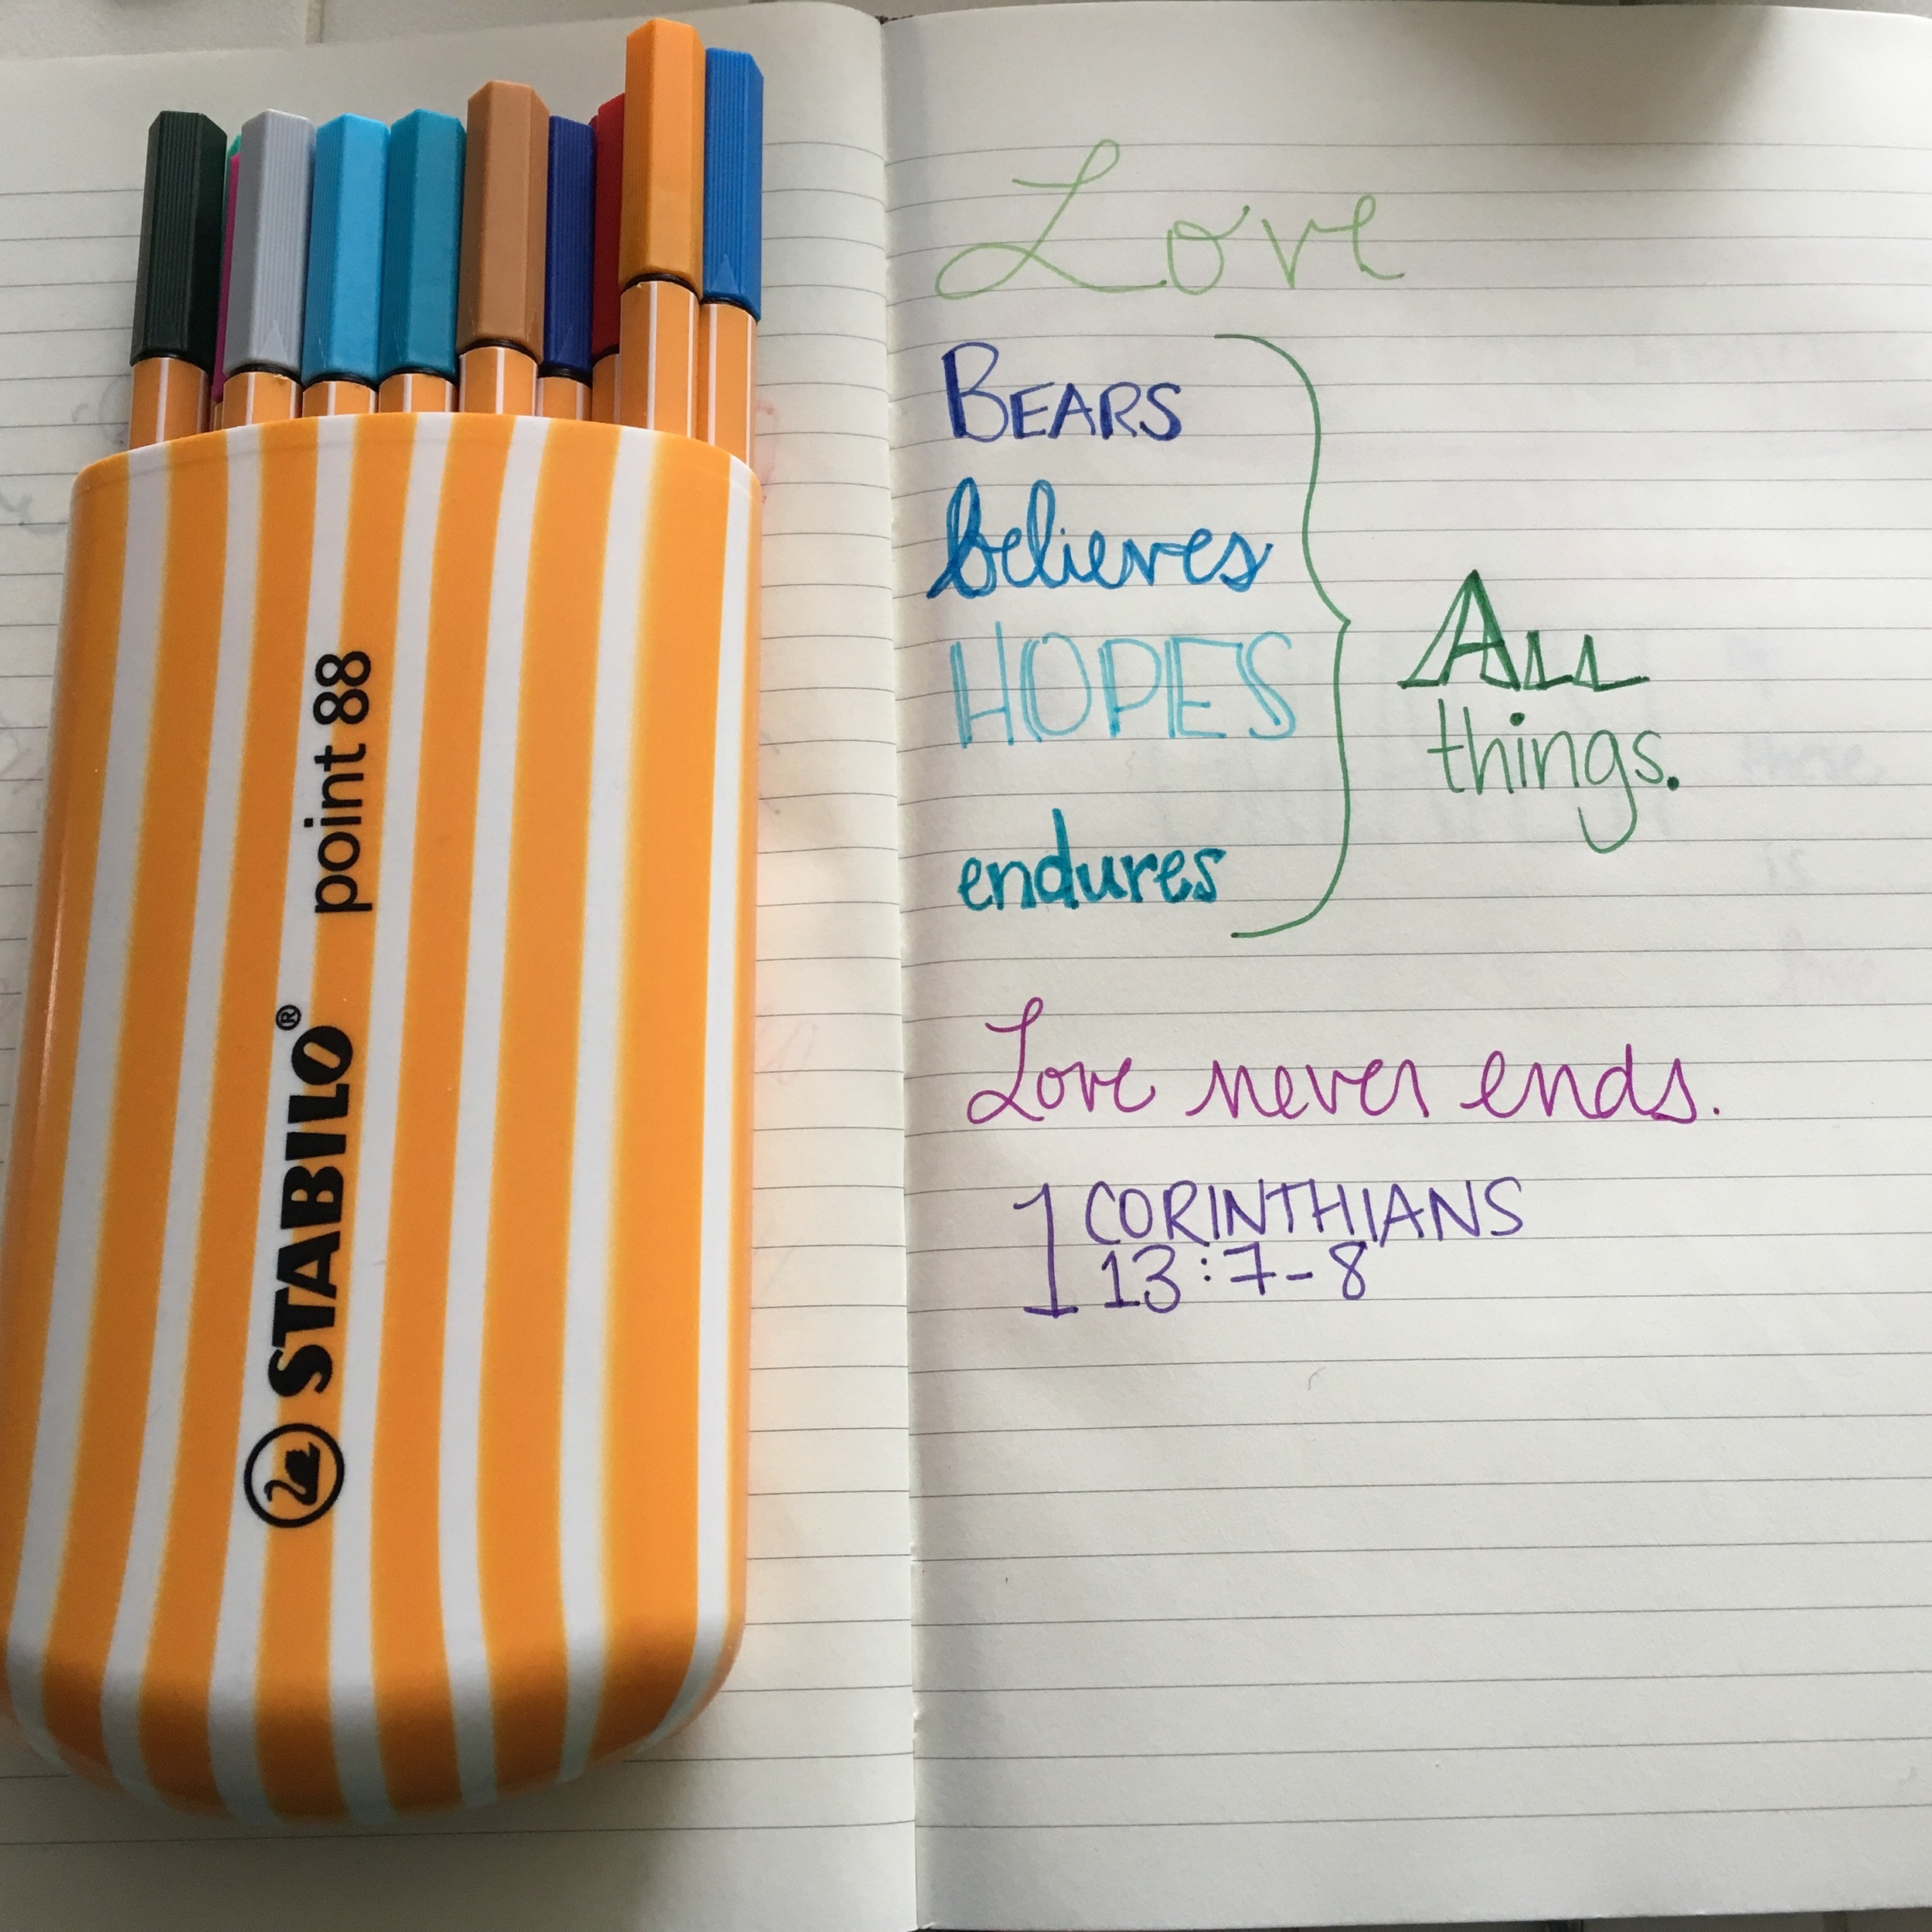 STABILO® point 88
Love
BEARS
believes
HOPES
endures
ALL
things.
Love never ends.
1 CORINTHIANS
13:7-8